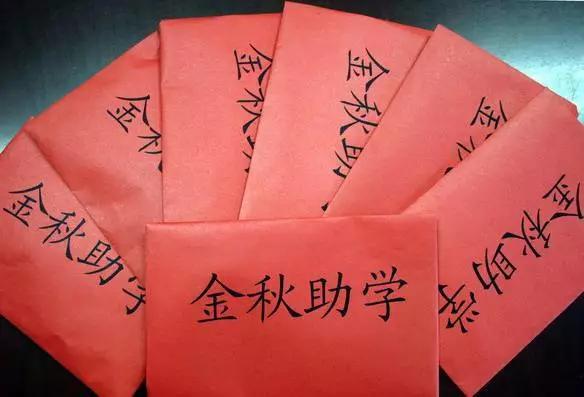 金秋助学
金秋
金秋
金秋助
金
金秋助学
金秋助学